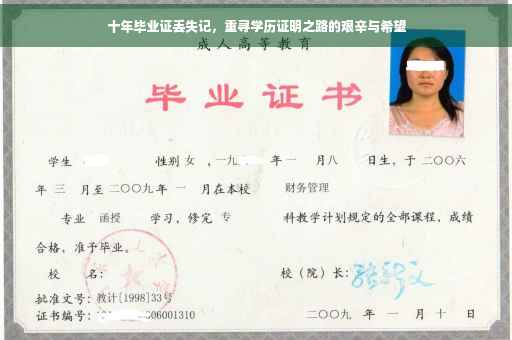 十年毕业证丢失记，重寻学历证明之路的艰辛与希望
成人高等教育
毕业证书
学生 性别 女 ，一九 年 一 月 八 日生，于 二〇〇六
年 三 月至 二〇〇九 年 一 月在本校 财务管理
专业 函授 学习，修完 专 科教学计划规定的全部课程，成绩
合格，准予毕业。
校 名： 校（院）长：
批准文号：教计[1998]33号
证书编号： 06001310 二〇〇九 年 一 月 十 日